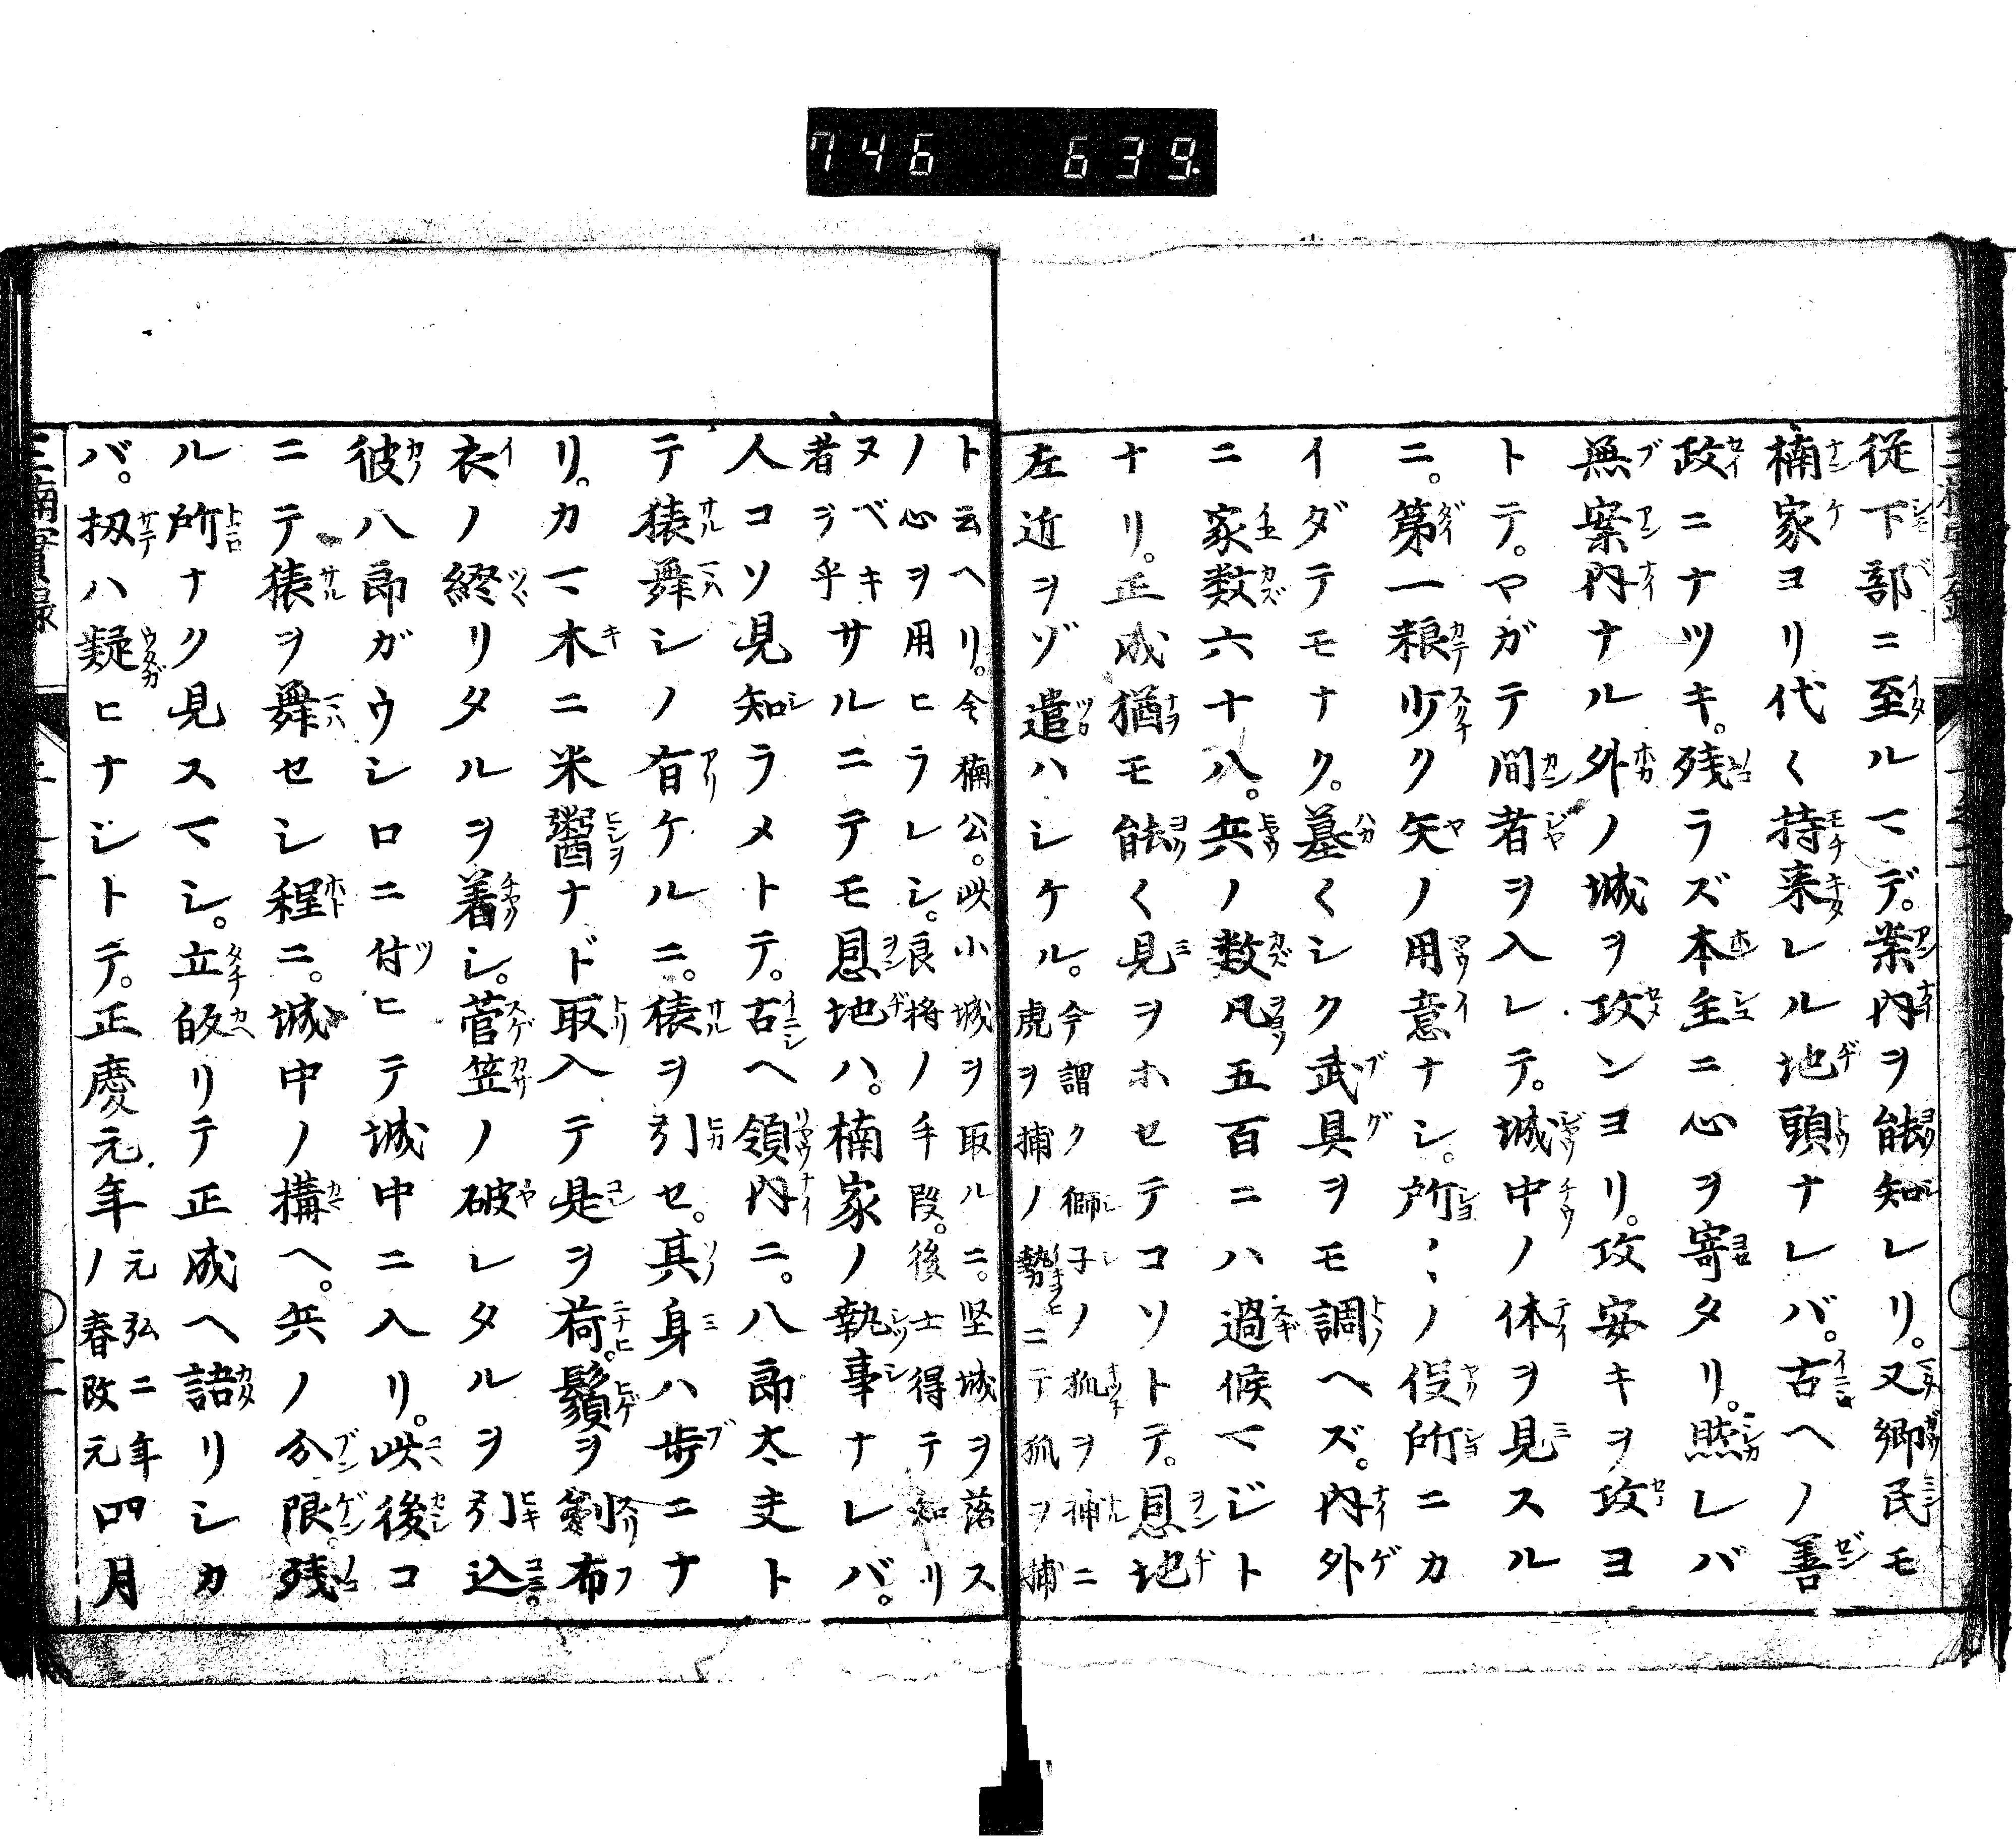 746 639.
従下部ニ至ルマデ。案内ヲ能知レリ。又郷民モ
楠家ヨリ代〱持来レル地頭ナレバ。古ヘノ善
政ニナツキ。残ラズ本主ニ心ヲ寄タリ。然レバ
無案内ナル外ノ城ヲ攻ンヨリ。攻安キヲ攻ヨ
トテ。マガテ間者ヲ入レテ。城中ノ体ヲ見スル
ニ。第一粮少ク矢ノ用意ナシ。所〻ノ役所ニカ
イダテモナク。墓〱シク武具ヲモ調ヘズ。内外
ニ家数六十八。兵ノ数凡五百ニハ過候マジト
ナリ。正成猶モ能〱見ヲホセテコソトテ。恩地
左近ヲゾ遣ハシケル。今謂ク獅子ノ狐ヲ捕ニ
虎ヲ捕ノ勢ニテ狐ヲ捕
ト云ヘリ。今楠公。此小城ヲ取ルニ。堅城ヲ落ス
ノ心ヲ用ヒラレシ。良将ノ手段。後士得テ知リ
ヌベキサルニテモ恩地ハ。楠家ノ執事ナレバ。
者ヲ乎
人コソ見知ラメトテ。古ヘ領内ニ。八郎太夫ト
テ猿舞シノ有ケルニ。猿ヲ引セ。其身ハ歩ニナ
リ。カマ木ニ米醤ナド取入テ是ヲ荷。鬚ヲ剃布
衣ノ綴リタルヲ着シ。菅笠ノ破レタルヲ引込。
彼八郎ガウシロニ付ヒテ城中ニ入リ。此後コ
ニテ猿ヲ舞セシ程ニ。城中ノ構ヘ。兵ノ分限。残
ル所ナク見スマシ。立皈リテ正成ヘ語リシカ
バ。扨ハ疑ヒナシトテ。正慶元年ノ元弘二年春改元四月
三楠實録